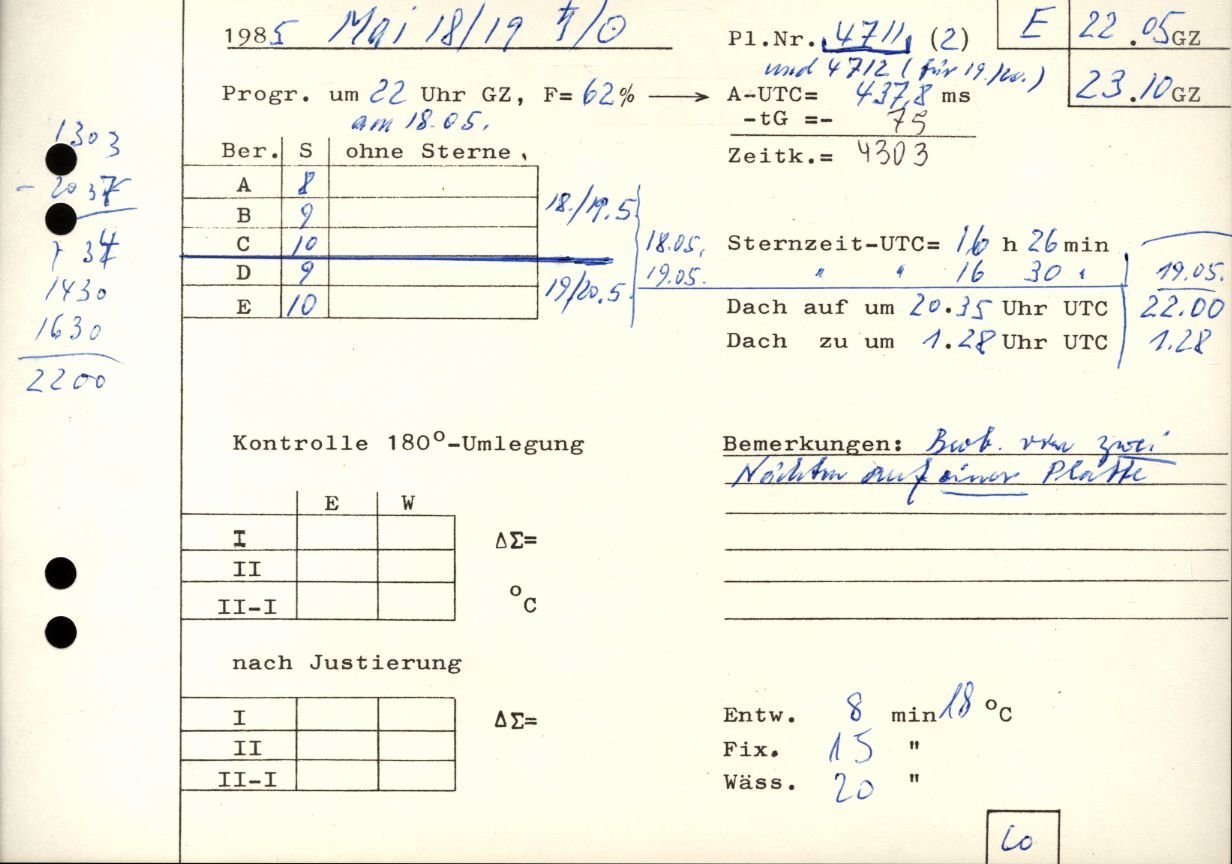 1985 Mai 18/19 ♄/☉
Pl.Nr. 4711 (2)
und 4712 (für 19./20.)
E 22.05 GZ
23.10 GZ
Progr. um 22 Uhr GZ, F= 62% → A-UTC= 437,8 ms
am 18.05.
-tG =- 75
Zeitk.= 4303
1303
- 2037
734
1430
1630
2200
Ber. S ohne Sterne
A 8
B 9
C 10
D 9
E 10
18./19.5
19/20.5
18.05. Sternzeit-UTC= 16 h 26 min
19.05. " " 16 30 " 19.05.
Dach auf um 20.35 Uhr UTC 22.00
Dach zu um 1.28 Uhr UTC 1.28
Kontrolle 180°-Umlegung
E W
I ΔΣ=
II
II-I °C
Bemerkungen: Beob. von zwei
Nächten auf einer Platte
nach Justierung
I ΔΣ=
II
II-I
Entw. 8 min 18 °C
Fix. 15 "
Wäss. 20 "